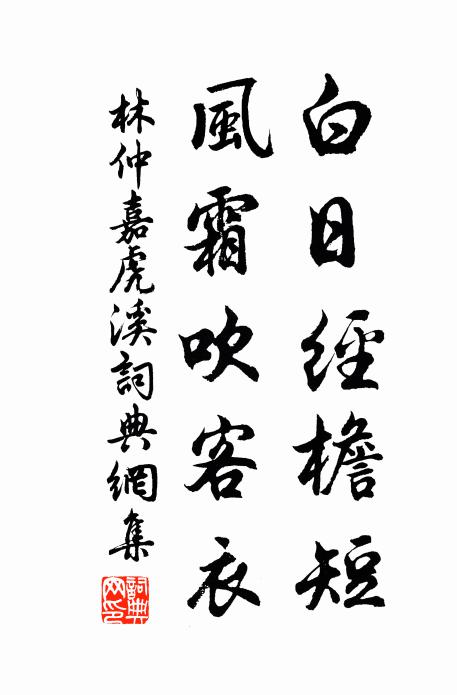 白日經檐短
風霜吹客衣
林仲嘉虎溪詞典網集
詞典網印